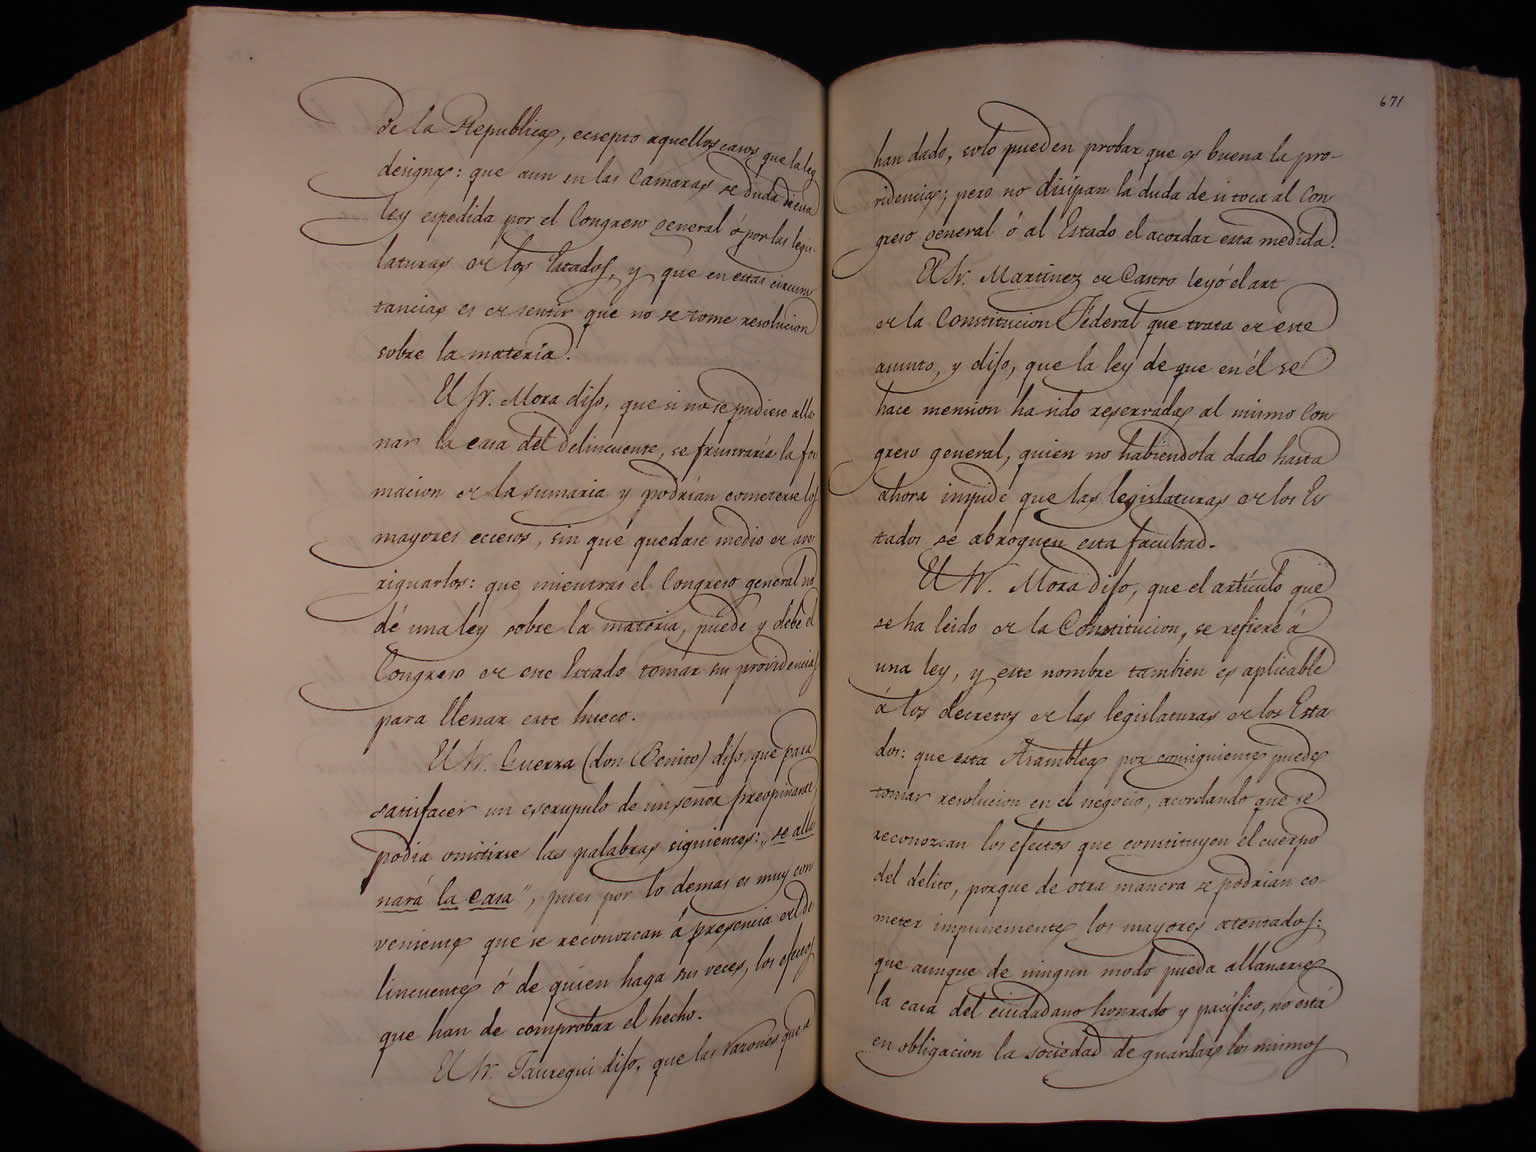 de la Republica, ecsepto aquellos casos que la ley
designa: que aun en las Camaras se duda si una
ley espedida por el Congreso general ó por las legis-
laturas de los Estados, y que en estas circuns-
tancias es de sentir que no se tome resolucion
sobre la materia.
El Sr. Mora dijo, que si no se pudiese alla-
nar la casa del delincuente, se frustraría la for
macion de la sumaria y podrian cometerse los
mayores eccesos, sin que quedase medio de ave
riguarlos: que mientras el Congreso general no
dé una ley sobre la materia, puede y debe el
Congreso de este Estado tomar su providencia
para llenar este hueco.
El Sr. Guerra (don Benito) dijo, que para
satisfacer un escrupulo de un señor preopinante,
podia omitirse las palabras siguientes: „se alla
nará la casa", pues por lo demas es muy con
veniente que se reconozcan á presencia del de
lincuente ó de quien haga sus veces, los efectos
que han de comprobar el hecho.
El Sr. Jauregui dijo, que las razones que se
671
han dado, solo pueden probar que es buena la pro-
videncia; pero no disipan la duda de si toca al Con-
greso general ó al Estado el acordar esta medida.
El Sr. Martinez de Castro leyó el art
de la Constitucion Federal que trata de este
asunto, y dijo, que la ley de que en él se
hace mension ha sido reservada al mismo Con-
greso general, quien no habiendola dado hasta
ahora impide que las legislaturas de los Es
tados se abroguen esta facultad.
El Sr. Mora dijo, que el artículo que
se ha leido de la Constitucion, se refiere á
una ley, y este nombre tambien es aplicable
á los decretos de las legislaturas de los Esta
dos: que esta Asamblea por consiguiente puede
tomar resolucion en el negocio, acordando que se
reconozcan los efectos que constituyen el cuerpo
del delito, porque de otra manera se podrian co-
meter impunemente los mayores atentados:
que aunque de ningun modo pueda allanarse
la casa del ciudadano honrado y pacífico, no está
en obligacion la sociedad de guardar los mismos